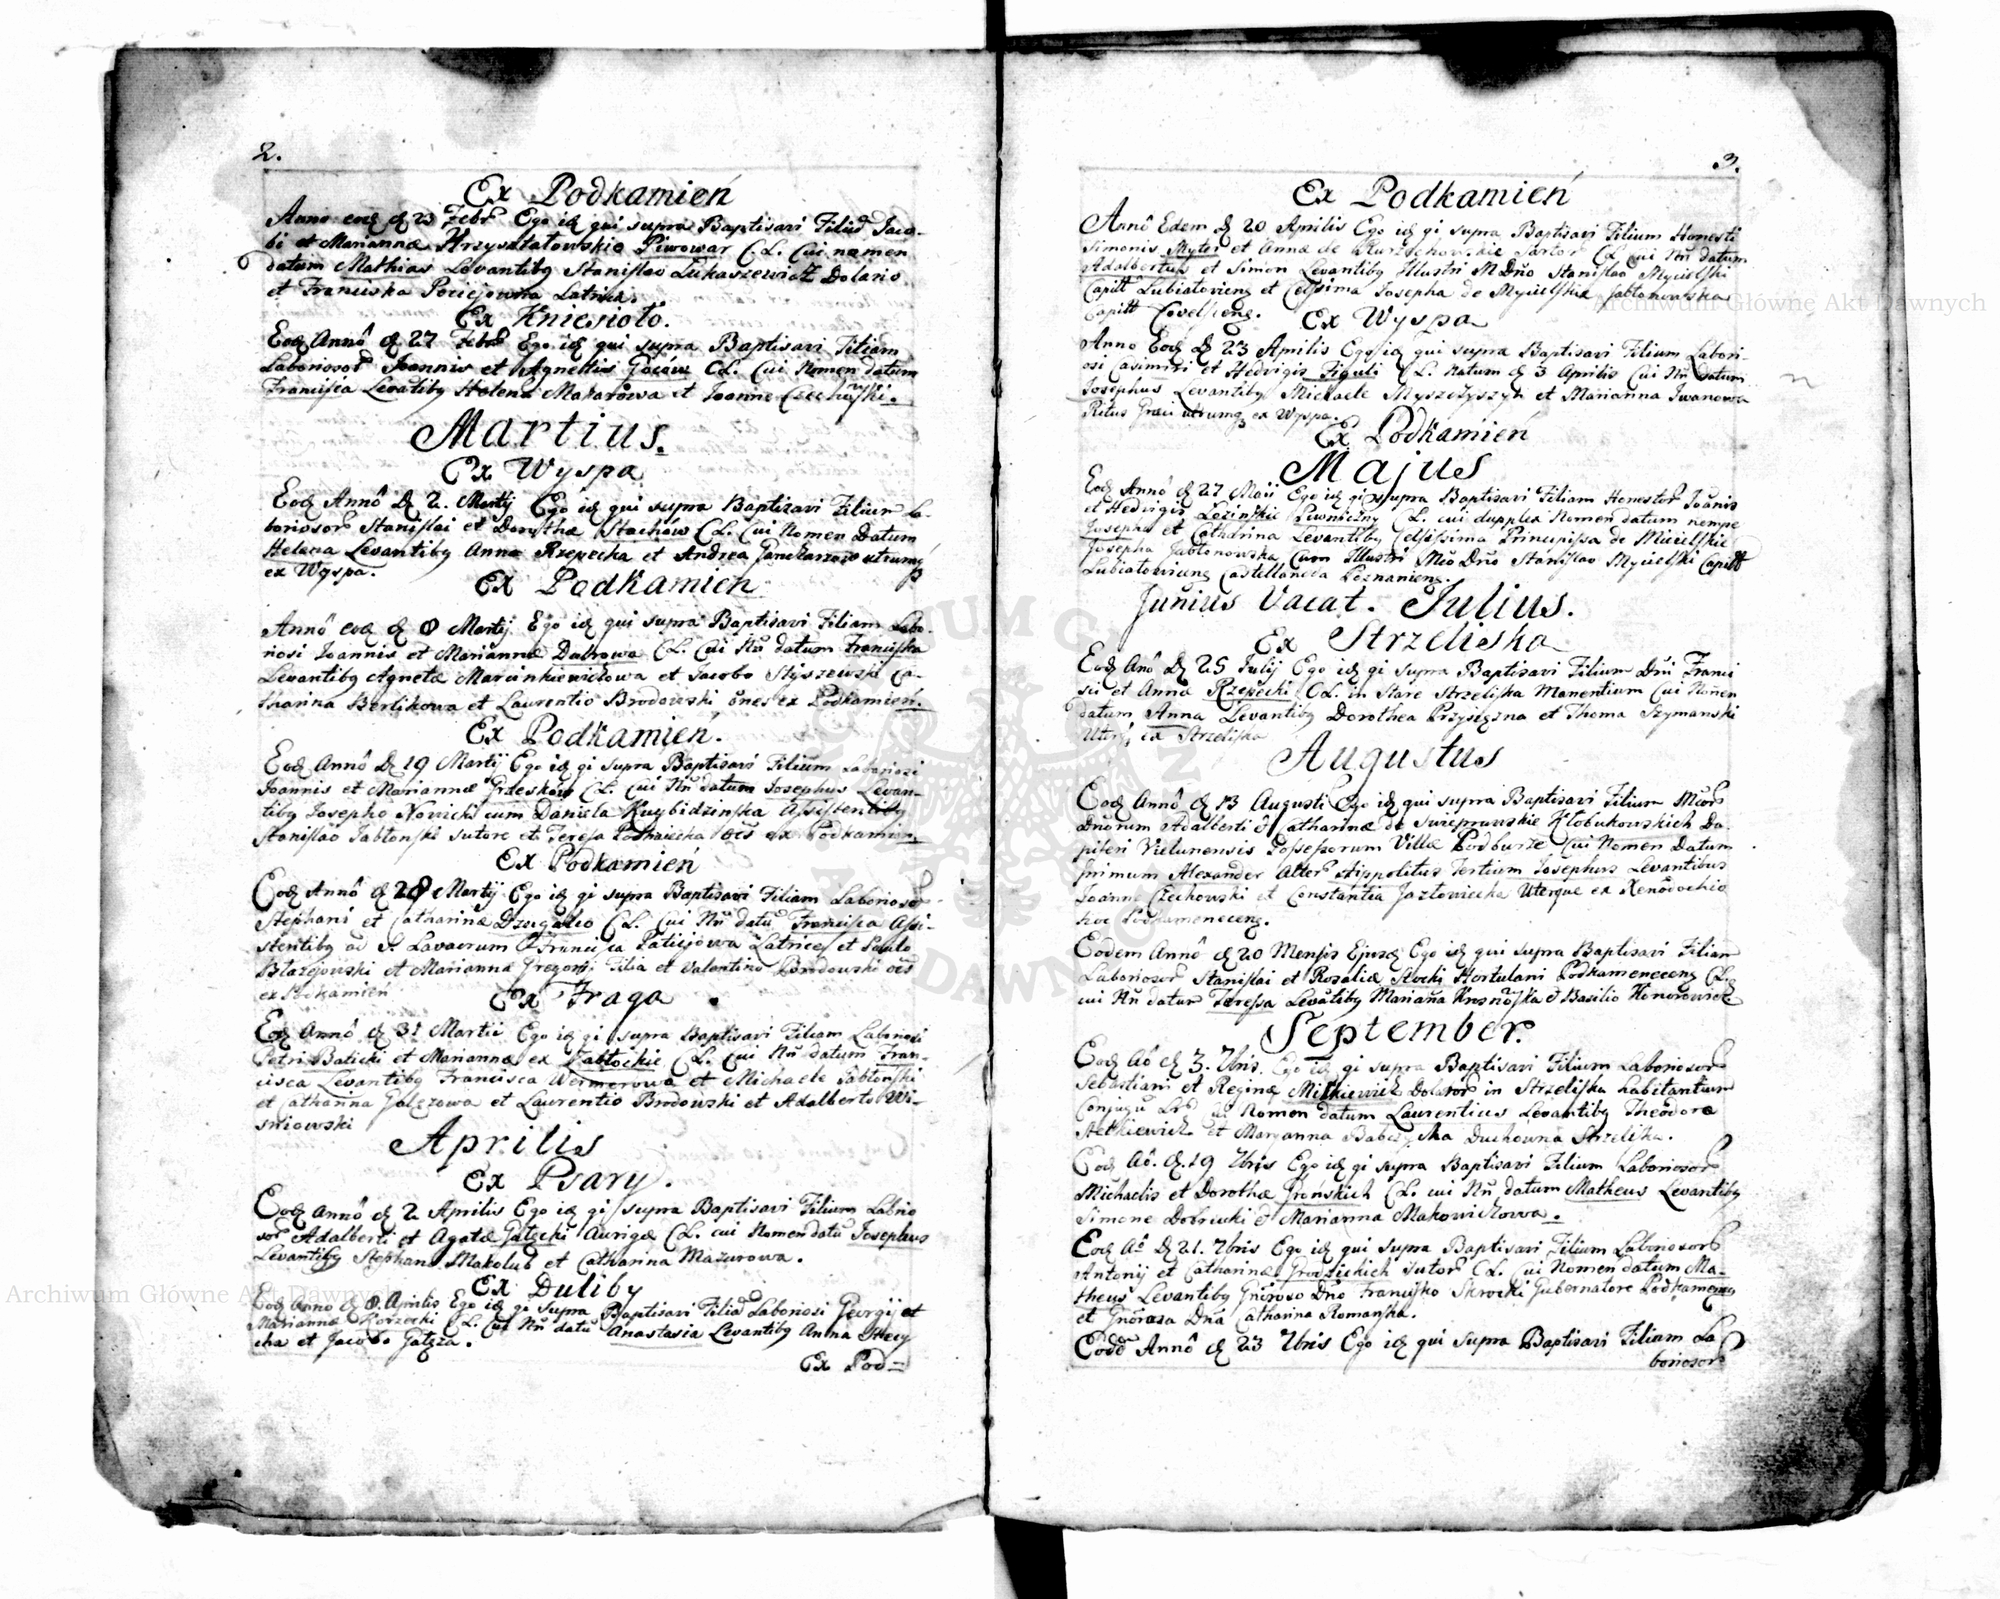 2.
Ex Podkamień
Anno eod d 23 Febr Ego id qui supra Baptisavi Filiũ Jaco-
bi et Mariannæ Krzysztatowskie Piwowar CL. Cui nomen
datum Mathias Levantibq Stanislao Lukaszewicz Dolario
et Franciska Pociejowna Latrice.
Ex Kniesioło.
Eod Annô d 27 Febr Ego id qui supra Baptisavi Filiam
Laboriosor Joannis et Agnetis CL. Cui Nomen datum
Francisca Levãtibq Helena Makarowa et Joanne
Martius.
Ex Wyspa
Eod Annô D 2. Martij Ego id qui supra Baptisavi Filium La-
boriosor Stanislai et Dorothæ Stachów CL. Cui Nomen Datum
Helena Levantibq Anna Rzepecka et Andrea utrumq
ex Wyspa.
Ex Podkamień
Annô eod d 8 Martij Ego id qui supra Baptisavi Filiam Labo-
riosi Joannis et Mariannæ Dubrowa CL. Cui Nũ datum Franciska
Levantibq Agneta Marcinkiewiczowa et Jacobo Styszewski Ca-
tharina Berlikowa et Laurentio Brodowski õnes ex Podkamień.
Ex Podkamien.
Eod Annô D 19 Martij Ego id qi supra Baptisavi Filium Laboriosi
Joannis et Mariannæ Grzesków CL. Cui Nũ datum Josephus Levan-
tibq Josepho Nowicki cum Daniela Kuybidzinska Assistentibq
Stanislao Jabłonski sutore et Teresa oẽs ex Podkamien
Ex Podkamień
Eod Annô d 28 Martij Ego id qi supra Baptisavi Filiam Laboriosor
Stephani et Catharinæ CL. Cui Nũ datũ Francisca Assi-
stentibq ad S. Lavacrum Francisca Paticjowa Latrice et Paulo
Błazejowski et Marianna Gregorij Filia et Valentino Brodowski oẽs
ex Podkamień
Ex Fraga
Eod Annô d 31 Martii Ego id qi supra Baptisavi Filiam Laboriosi
Petri Baticki et Mariannæ ex Zabłockie CL. Cui Nũ datum Fran-
cisca Levantibq Francisca Wermerowa et Michaele Jabłonski
et Catharina Galezowa et Laurentio Brodowski et Adalberto Wi-
sniowski
Aprilis
Ex Psary.
Eod Annô d 2 Aprilis Ego id qi supra Baptisavi Filium Labrio
sor Adalberti et Agatæ Gałęcki Aurigæ CL. cui Nomen datũ Josephus
Levantibq Stephano Makolub et Catharina Mazurowa.
Ex Duliby
Eod Anno d 8. Aprilis Ego id qi supra Baptisavi Filiã Laboriosi Georgij et
Mariannæ Korzecki CL. Cui Nũ datũ Anastasia Levantibq Anna
cka et Jacobo Gałęza.
Ex Pod=
3.
Ex Podkamień
Annô Edem D 20 Aprilis Ego id qi supra Baptisavi Filium Honesti
Simonis Myter et Annæ de Sartor CL cui Nũ datum
Adalbertus et Simon Levantibq Illustri M Dño Stanislao Mycielski
Capitt Lubiatoviens et Celsima Josepha de Mycielskie Jabłonowska
Capitt Covelsieng. Ex Wyspa
Anno Eod D 23 Aprilis Ego id qui supra Baptisavi Filium Labori-
osi Casimiri et Hedvigis Figuli CL. Natum d 3 Aprilis Cui Nũ Datum
Josephus Levantibq Michaele Myszczyszyn et Marianna Iwanowa
Ritus Græci utrumq ex Wyspa.
Ex Podkamień
Majus
Eod Annô d 27 Maii Ego id qi supra Baptisavi Filiam Honestor Joanis
et Hedvigis Lozinskie Piwniczny CL. cui dupplex Nomen datum nempe
Josepha et Catharina Levantibq Celsissima Principissa de Micielskie
Josepha Jabłonowska Cum Illustri Mco Dño Stanislao Mycielski Capitt
Lubiatowiceng Castellaneda Poznanieng.
Junius Vacat. Julius.
Ex Strzeliska
Eod Anô D 25 Julij Ego id qi supra Baptisavi Filium Dñi Franci
sci et Annæ Rzepecki CL. in Stare Strzeliska Manentium Cui Nomen
datum Anna Levantibq Dorothea Przysiężna et Thoma Szymanski
Utrq ex Strzeliska
Augustus
Eod Annô d 13 Augusti Ego id qui supra Baptisavi Filium Mcor
Dnorum Adalberti & Catharinæ de Kłobukowskich Da-
piferi Vielunensis Possessorum Villæ Podburze Cui Nomen Datum
Primum Alexander Alter Hippolitus Tertium Josephus Levantibus
Joanne Czechowski et Constantia Jazłowiecka Uterque ex Xenodochio
hoc Podkameneceng.
Eodem Annô d 20 Mensis Ejusd Ego id qui supra Baptisavi Filiam
Laboriosor Stanislai et Rosaliæ Skocki Hortulani Podkameneceng CL
cui Nũ datur Teressa Levãtibq Mariana & Basilio Honorowicz
September.
Eod Aô d 3. 7bris. Ego id qi supra Baptisavi Filium Laboriosor
Sebastiani et Reginæ Mitkiewicz Dolator in Strzeliska habitantium
Conjugũ Nomen datum Laurentius Levantibq Theodoro
Hetkiewicz et Maryanna Babczycka Duchowna Strzeliska.
Eod Aô. d. 19 7bris Ego id qi supra Baptisavi Filium Laboriosor
Michaelis et Dorothæ Gronskich CL. cui Nũ datum Matheus Levantibq
Simone Dobrucki & Marianna Makowiczowa.
Eod Aô D 21. 7bris Ego id qui supra Baptisavi Filium Laboriosor
Antonij et Catharinæ Grodzickich Sutor CL. Cui Nomen datum Ma-
theus Levantibq Gñroso Dño Francisko Skrocki Gubernatore Podkameneng
et Gñorosa Dña Catharina Romanska.
Eodẽ Annô d 23 7bris Ego id qui supra Baptisavi Filiam La
boriosor
Archiwum Główne Akt Dawnych
Archiwum Główne Akt Dawnych